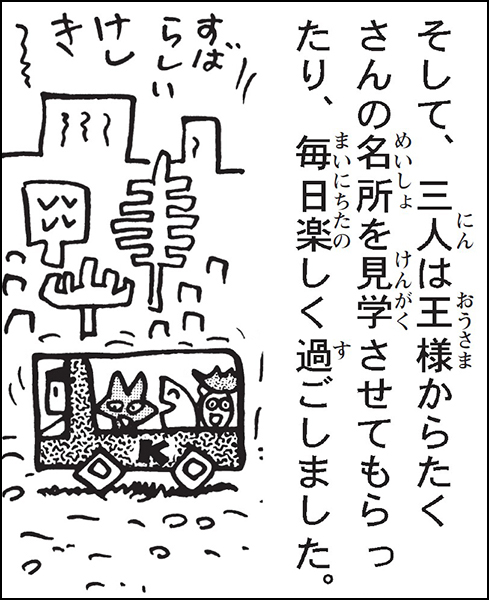 そして、三人は王様からたく
さんの名所を見学させてもらっ
たり、毎日楽しく過ごしました。
にん
おうさま
めいしょ
けんがく
まいにちたの
す
すば
らしい
けし
き
K